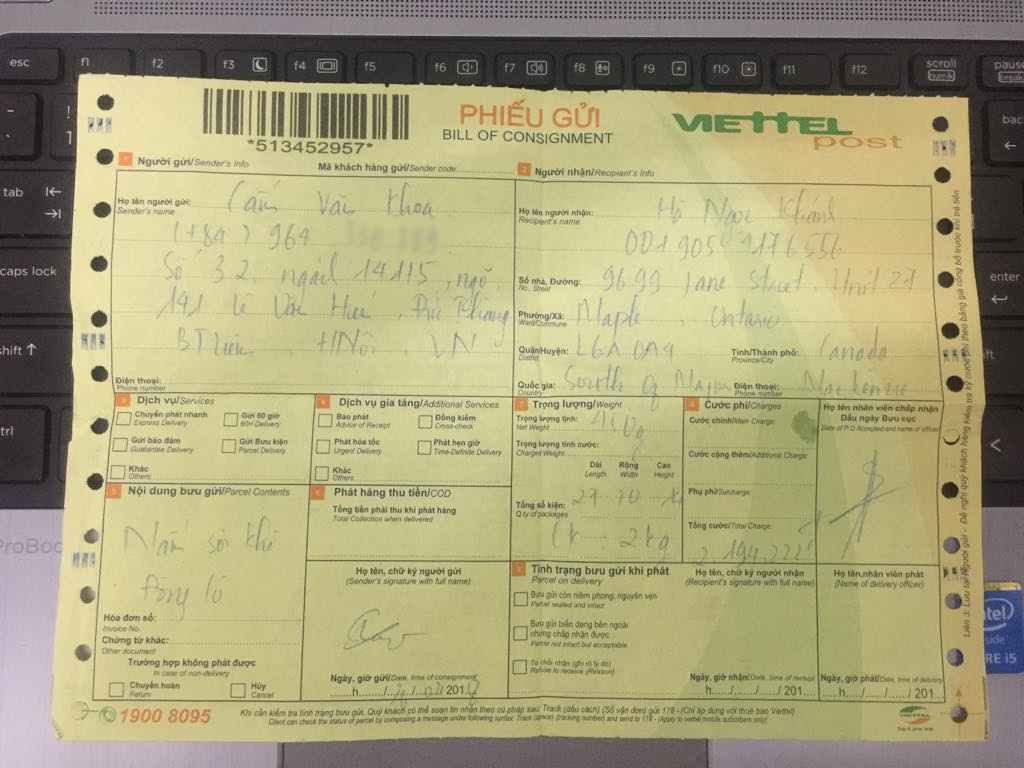 esc f1 f2 f3 f4 f5 f6 f7 f8 f9 f10 f11 f12 scroll pause
num lk break
tab
caps lock
shift
ctrl
enter
ProBoo
intel
inside
CORE i5
*513452957*
PHIẾU GỬI
BILL OF CONSIGNMENT
VIETTEL
post
1 Người gửi/Sender's Info Mã khách hàng gửi/Sender code:
Họ tên người gửi:
Sender's name
Cấn Văn Khoa
(+84) 964
Số 32 ngách 14115, ngõ
141
BTLiêm, HNội, VN
Điện thoại:
Phone number
2 Người nhận/Recipient's Info
Họ tên người nhận:
Recipient's name
Hồ Ngọc Khánh
001 905 9176556
Số nhà, Đường:
No., Street
9699 Jane Street, Unit 27
Phường/Xã:
Ward/Commune
Maple, Ontario
Quận/Huyện:
District
L6A 0A4
Tỉnh/Thành phố:
Province/City
Canada
Quốc gia:
Country
South of Major Mackenzie
Điện thoại:
Phone number
3 Dịch vụ/Services
Chuyển phát nhanh
Express Delivery
Gửi 60 giờ
60H Delivery
Gửi bảo đảm
Guarantee Delivery
Gửi Bưu kiện
Parcel Delivery
Khác
Others
4 Dịch vụ gia tăng/Additional Services
Báo phát
Advice of Receipt
Đồng kiểm
Cross-check
Phát hỏa tốc
Urgent Delivery
Phát hẹn giờ
Time-Definite Delivery
Khác
Others
5 Nội dung bưu gửi/Parcel Contents
Hóa đơn số:
Invoice No.
Chứng từ khác:
Other document
Trường hợp không phát được
In case of non-delivery
Chuyển hoàn
Return
Hủy
Cancel
6 Phát hàng thu tiền/COD
Tổng tiền phải thu khi phát hàng
Total Collection when delivered
Họ tên, chữ ký người gửi
(Sender's signature with full name)
Ngày, giờ gửi/Date, time of consignment
7 Trọng lượng/Weight
Trọng lượng tịnh:
Net Weight
Trọng lượng tính cước:
Charged Weight
Dài Rộng Cao
Length Width Height
Tổng số kiện:
Q.ty of packages
2kg
8 Cước phí/Charges
Cước chính/Main Charge:
Cước cộng thêm/Additional Charge:
Phụ phí/Surcharge:
Tổng cước/Total Charge:
Họ tên nhân viên chấp nhận
Dấu ngày Bưu cục
Date of P.O Accepted and name of officer
9 Tình trạng bưu gửi khi phát
Parcel on delivery
Bưu gửi còn niêm phong, nguyên vẹn
Parcel sealed and intact
Bưu gửi biến dạng bên ngoài
nhưng chấp nhận được
Parcel not intact but acceptable
Từ chối nhận (ghi rõ lý do)
Refuse to receive (Reason)
Họ tên, chữ ký người nhận
(Recipient's signature with full name)
Ngày, giờ nhận/Date, time of receipt
h....../....../201
Họ tên, nhân viên phát
(Name of delivery officer)
Ngày, giờ phát/Date, time of delivery
h....../....../201
Liên 3: Lưu tại người gửi - Đề nghị quý khách hàng kiểm tra kỹ cước phí theo bảng giá công bố trước khi trả tiền
1900 8095
Khi cần kiểm tra tình trạng bưu gửi, Quý khách có thể soạn tin nhắn theo cú pháp sau: Track (dấu cách) (Số vận đơn) gửi 178 - (Chỉ áp dụng với thuê bao Viettel)
Client can check the status of parcel by composing a message under following syntax: Track (space) (tracking number) and send to 178 - (Apply to viettel mobile subscribers only)
VIETTEL